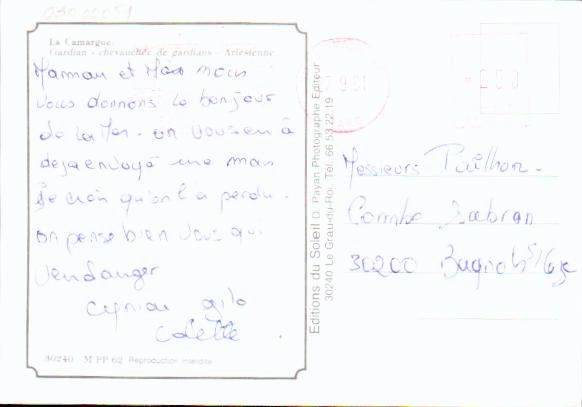 La Camargue.
Gardian - chevauchée de gardians - Arlésienne
Maman et nous
vous donnons le bonjour
de la Mer. on vous en à
deja envoyé une mais
je croi qu'on l'a perdu.
on pense bien vous qui
vendanger
Colette.
30240 M PP 62 Reproduction interdite
Editions du Soleil D. Payan Photographe Editeur
30240 Le Grau-du-Roi. Tél. 66 53 22 19
Messieurs Pailhon.
Combe Sabran
30200 Bagnols S/Ceze